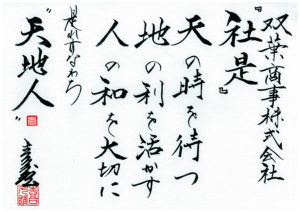 双葉商事株式会社
『社是』
天の時を待つ
地の利を活かす
人の和を大切に
是れすなわち
“天地人”